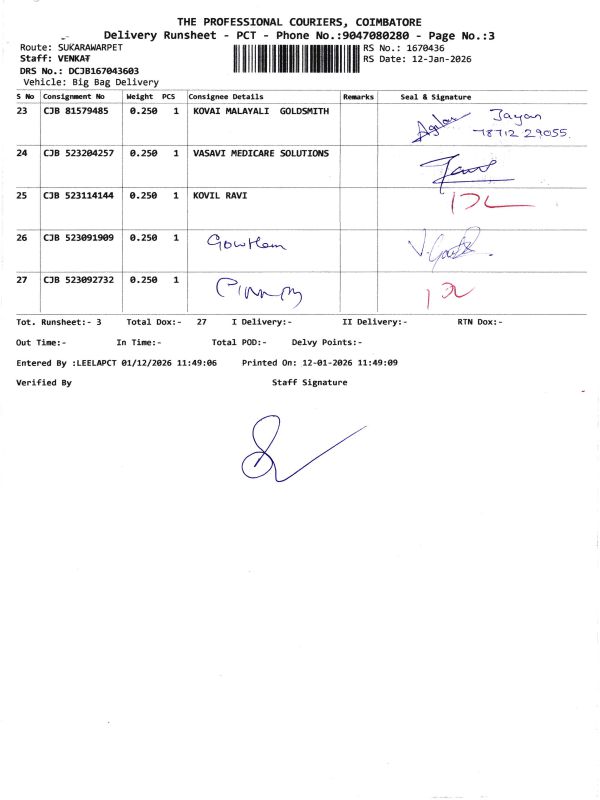 THE PROFESSIONAL COURIERS, COIMBATORE
Delivery Runsheet - PCT - Phone No.:9047080280 - Page No.:3
Route: SUKARAWARPET RS No.: 1670436
Staff: VENKAT RS Date: 12-Jan-2026
DRS No.: DCJB167043603
Vehicle: Big Bag Delivery
S No Consignment No Weight PCS Consignee Details Remarks Seal & Signature
23 CJB 81579485 0.250 1 KOVAI MALAYALI GOLDSMITH Jayan
78712 29055
24 CJB 523204257 0.250 1 VASAVI MEDICARE SOLUTIONS
25 CJB 523114144 0.250 1 KOVIL RAVI
26 CJB 523091909 0.250 1 Gowtham
27 CJB 523092732 0.250 1
Tot. Runsheet:- 3 Total Dox:- 27 I Delivery:- II Delivery:- RTN Dox:-
Out Time:- In Time:- Total POD:- Delvy Points:-
Entered By :LEELAPCT 01/12/2026 11:49:06 Printed On: 12-01-2026 11:49:09
Verified By Staff Signature